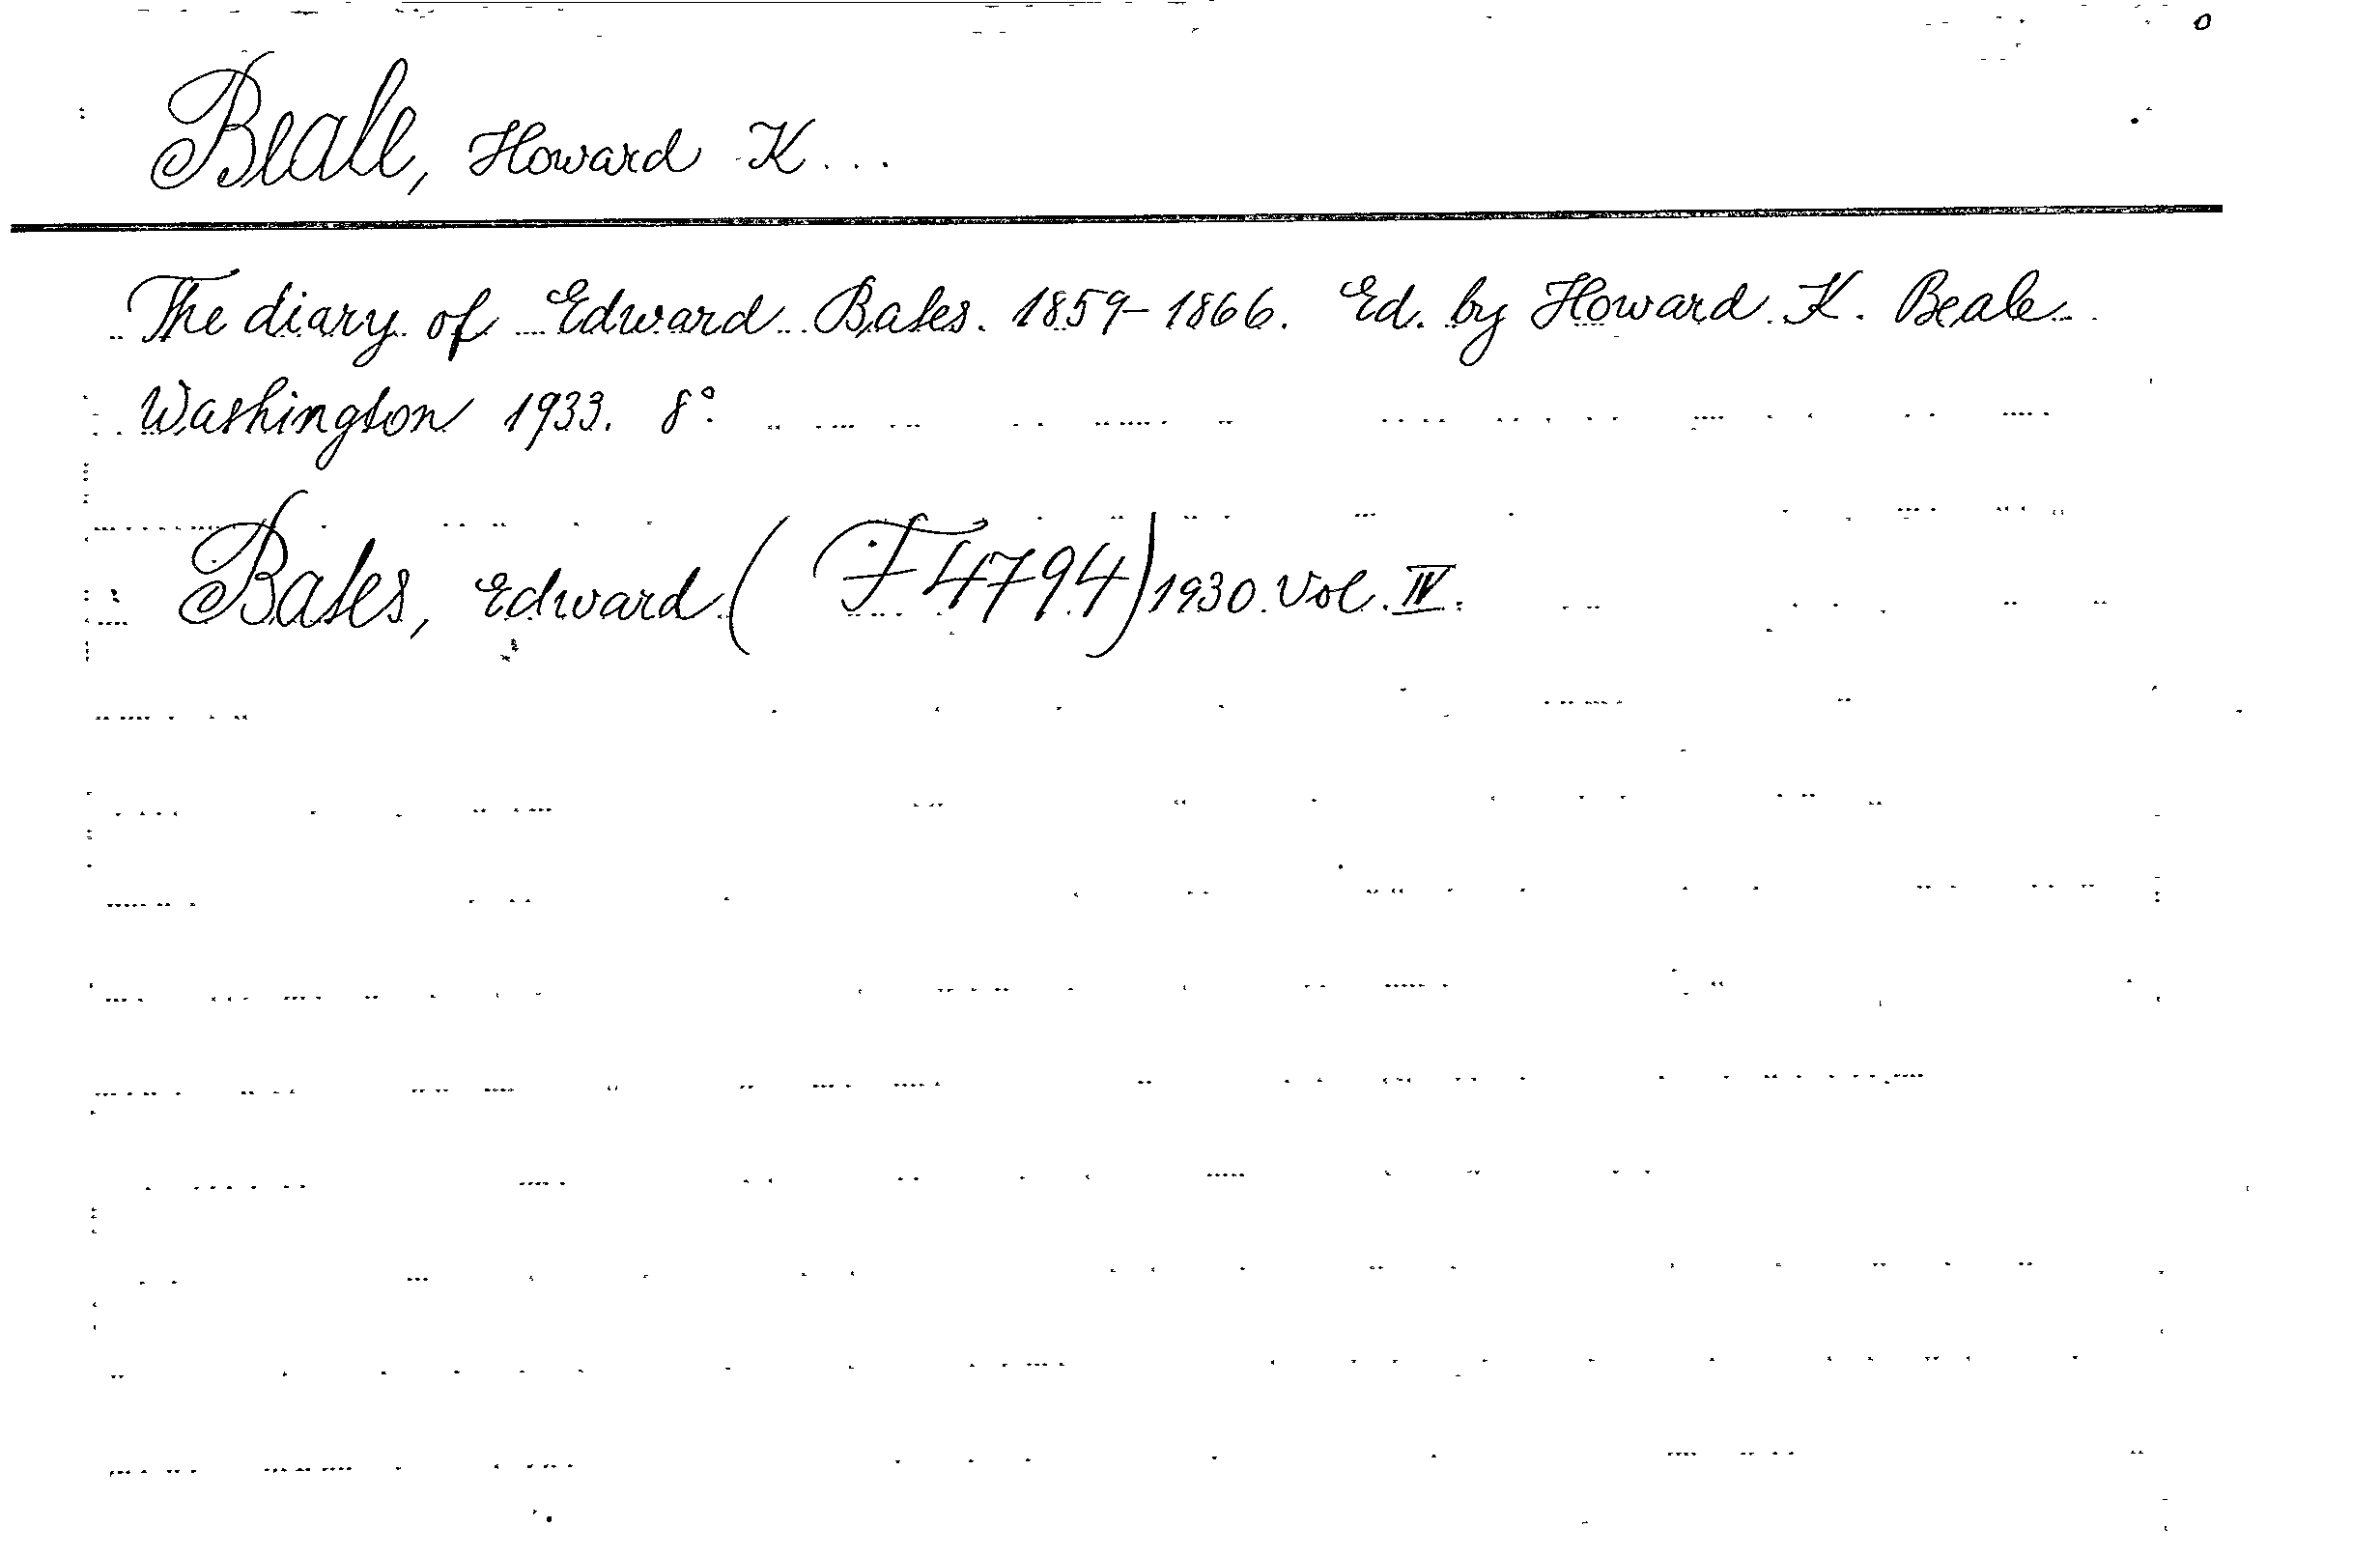 Beale, Howard K...
The diary of Edward Bates. 1859-1866. Ed. by Howard K. Beale
Washington 1933. 8°.
Bates, Edward (F 4794) 1930. Vol. IV.